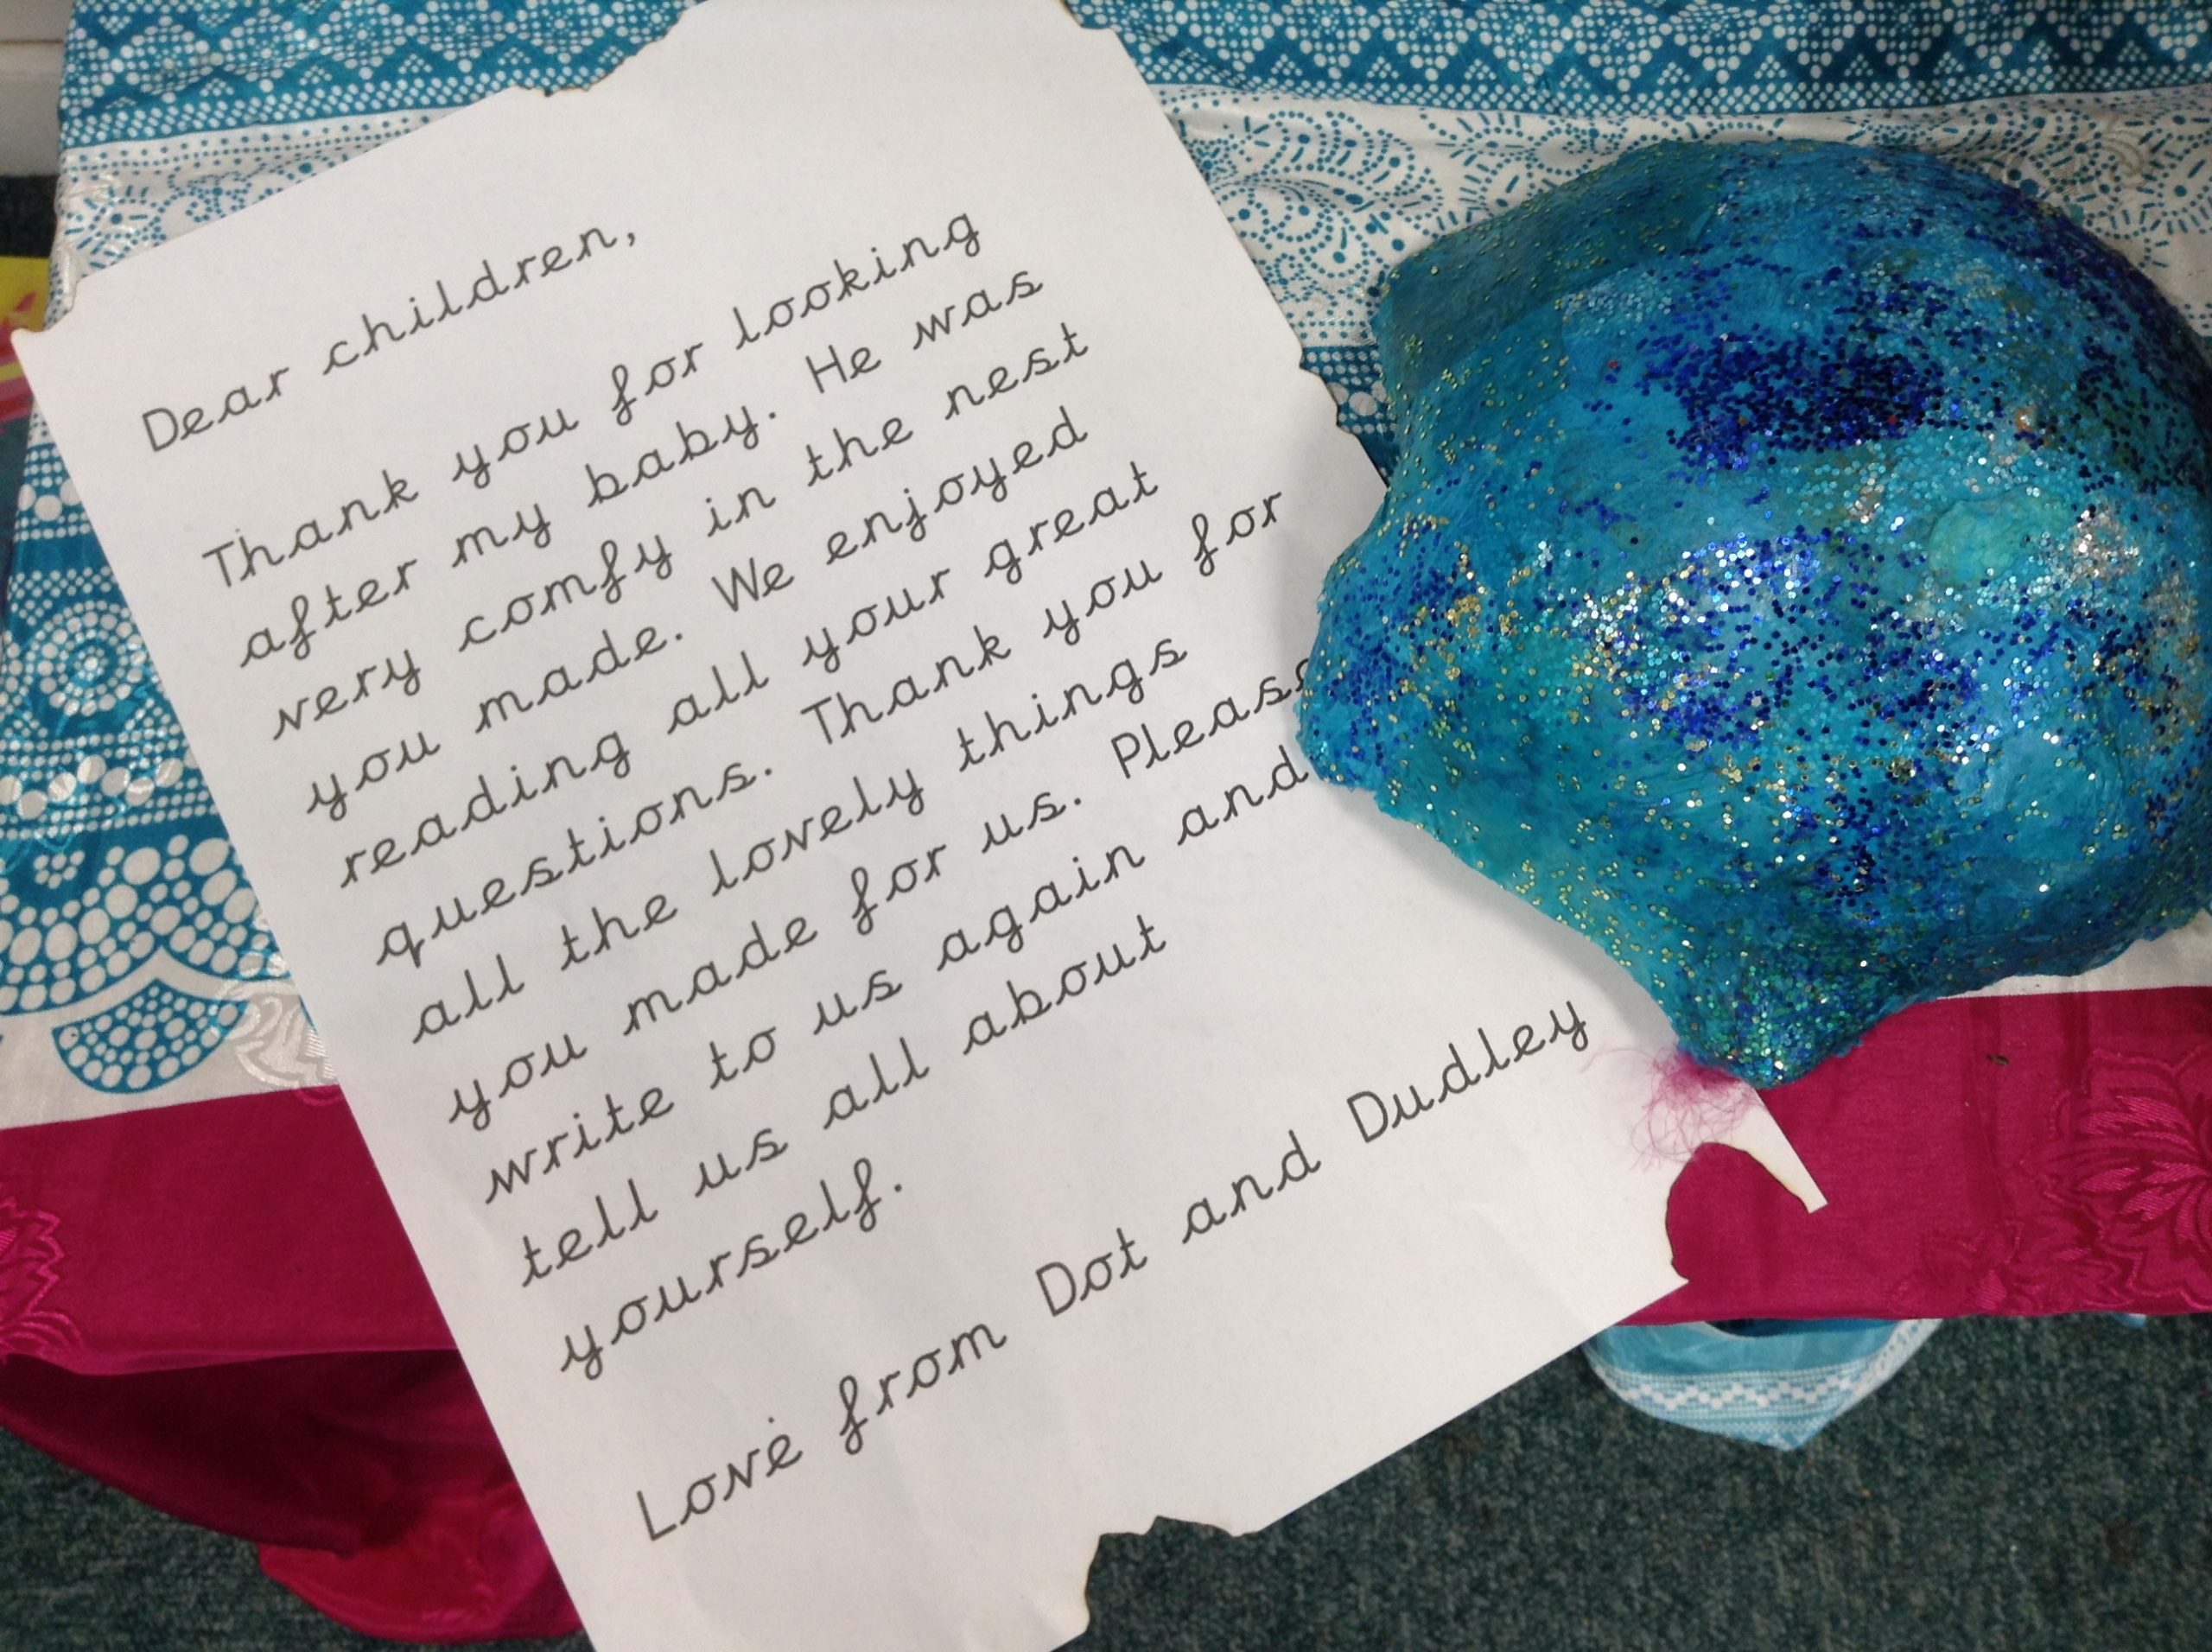 Dear children,
Thank you for looking
after my baby. He was
very comfy in the nest
you made. We enjoyed
reading all your great
questions. Thank you for
all the lovely things
you made for us. Please
write to us again and
tell us all about
yourself.
Love from Dot and Dudley